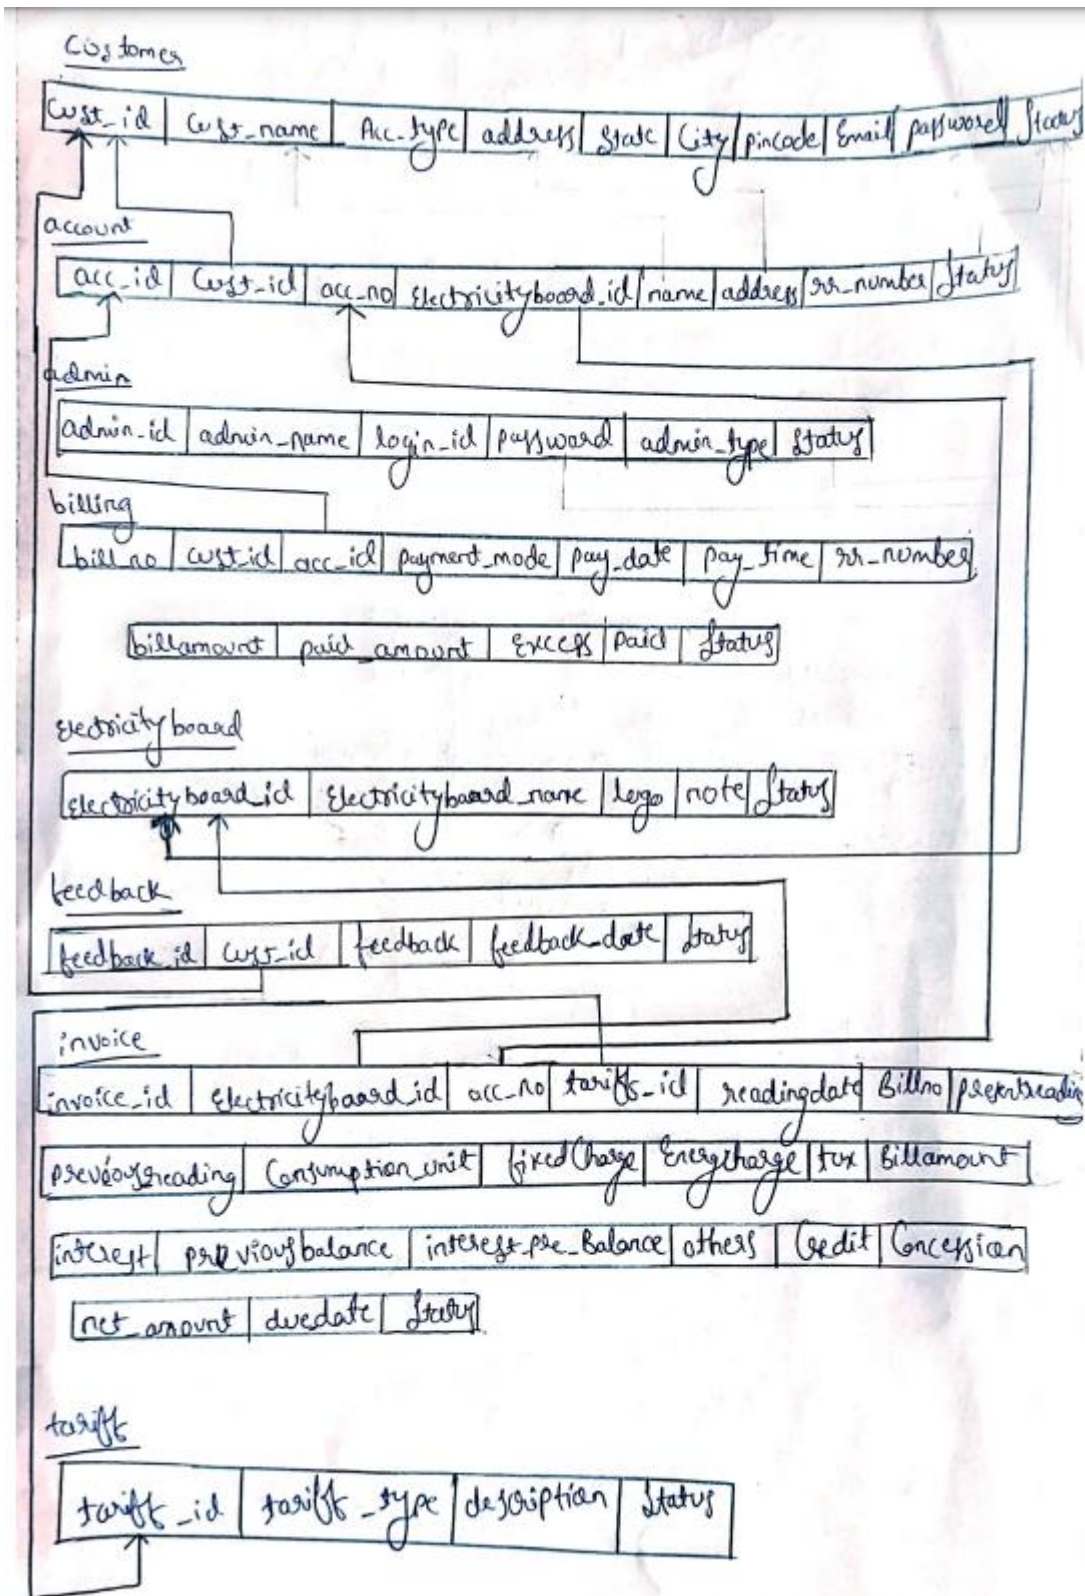 Customer
Cust_id cust_name Acc_type address State City pincode Email password Status
account
acc_id Cust_id acc_no Electricityboard_id name address rr_number Status
admin
admin_id admin_name login_id password admin_type Status
billing
bill_no cust_id acc_id payment_mode pay_date pay_time rr_number
billamount paid_amount Excess paid Status
Electricityboard
Electricityboard_id Electricityboard_name logo note Status
feedback
feedback_id cust_id feedback feedback_date Status
invoice
invoice_id Electricityboard_id acc_no tariff_id readingdate Billno presentreading
previousreading Consumption_unit fixedCharge Energcharge tax Billamount
interest previousbalance interest_pre_Balance others Credit Concession
net_amount duedate Status
tariff
tariff_id tariff_type description Status